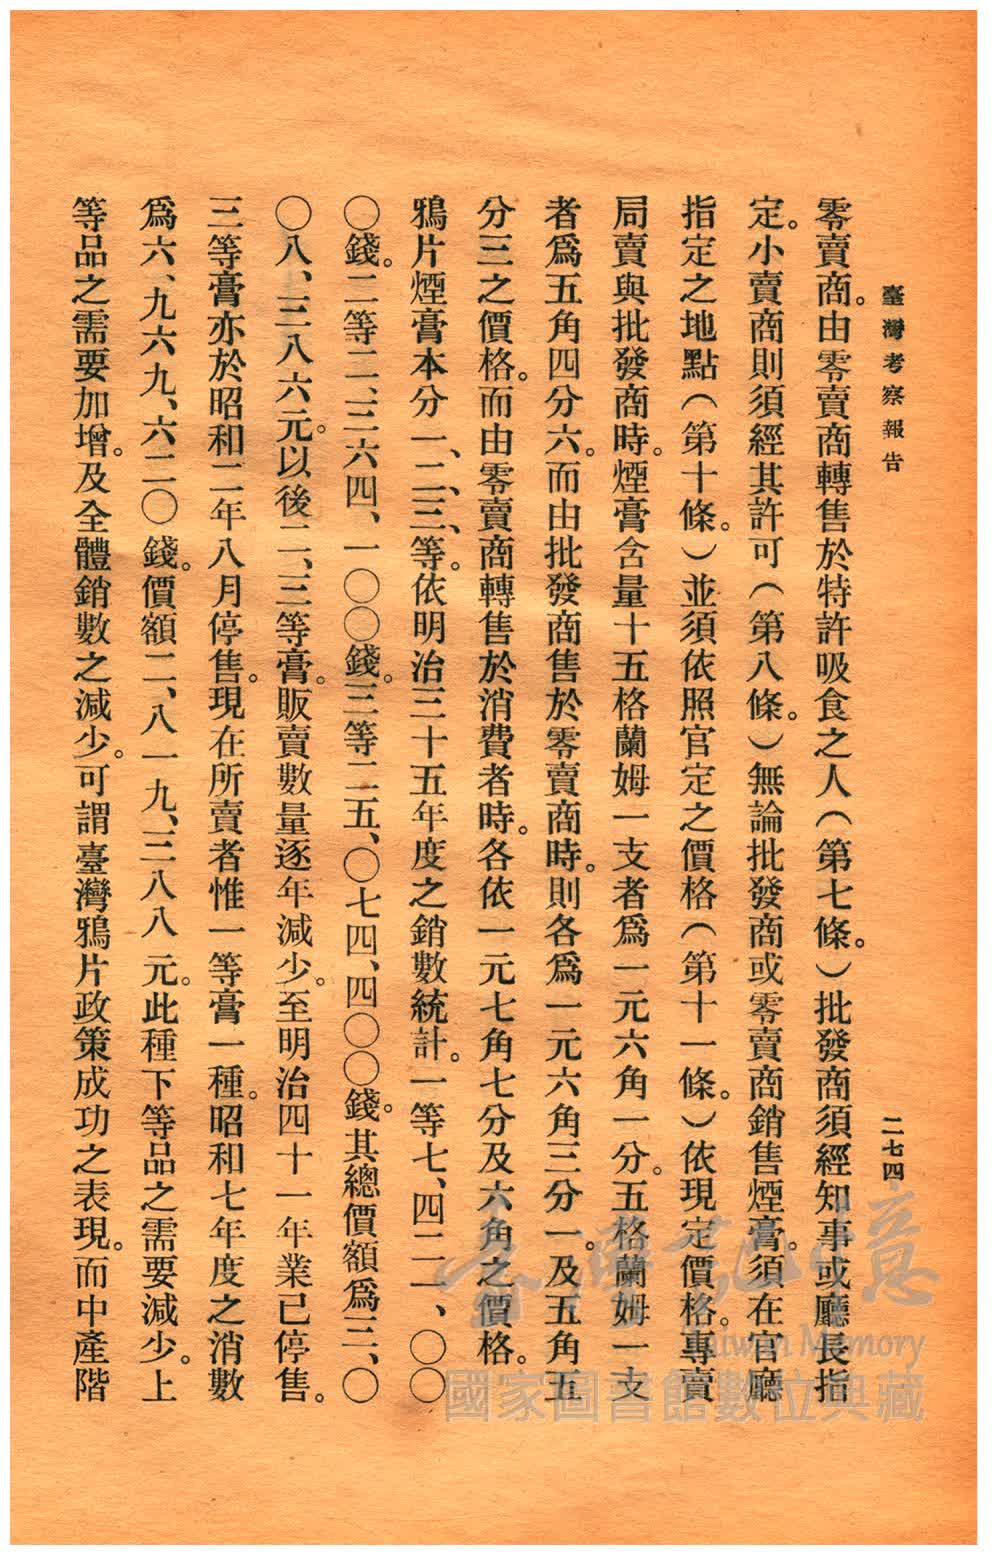 臺灣考察報告
二七四
零賣商。由零賣商轉售於特許吸食之人（第七條。）批發商須經知事或廳長指
定。小賣商則須經其許可（第八條。）無論批發商或零賣商銷售煙膏。須在官廳
指定之地點（第十條。）並須依照官定之價格（第十一條。）依現定價格。專賣
局賣與批發商時。煙膏含量十五格蘭姆一支者爲一元六角一分。五格蘭姆一支
者爲五角四分六。而由批發商售於零賣商時。則各爲一元六角三分一。及五角五
分三之價格。而由零賣商轉售於消費者時。各依一元七角七分及六角之價格。
鴉片煙膏本分一、二、三、等。依明治三十五年度之銷數統計。一等七、四二一、〇〇
〇錢。二等二、三六四、一〇〇錢。三等二五、〇七四、四〇〇錢。其總價額爲三、〇
〇八、三八六元。以後二、三等膏。販賣數量逐年減少。至明治四十一年業已停售。
三等膏亦於昭和二年八月停售。現在所賣者惟一等膏一種。昭和七年度之消數
爲六、九六九、六二〇錢。價額二、八一九、三八八元。此種下等品之需要減少。上
等品之需要加增。及全體銷數之減少。可謂臺灣鴉片政策成功之表現。而中產階
臺灣記憶
Taiwan Memory
國家圖書館數位典藏